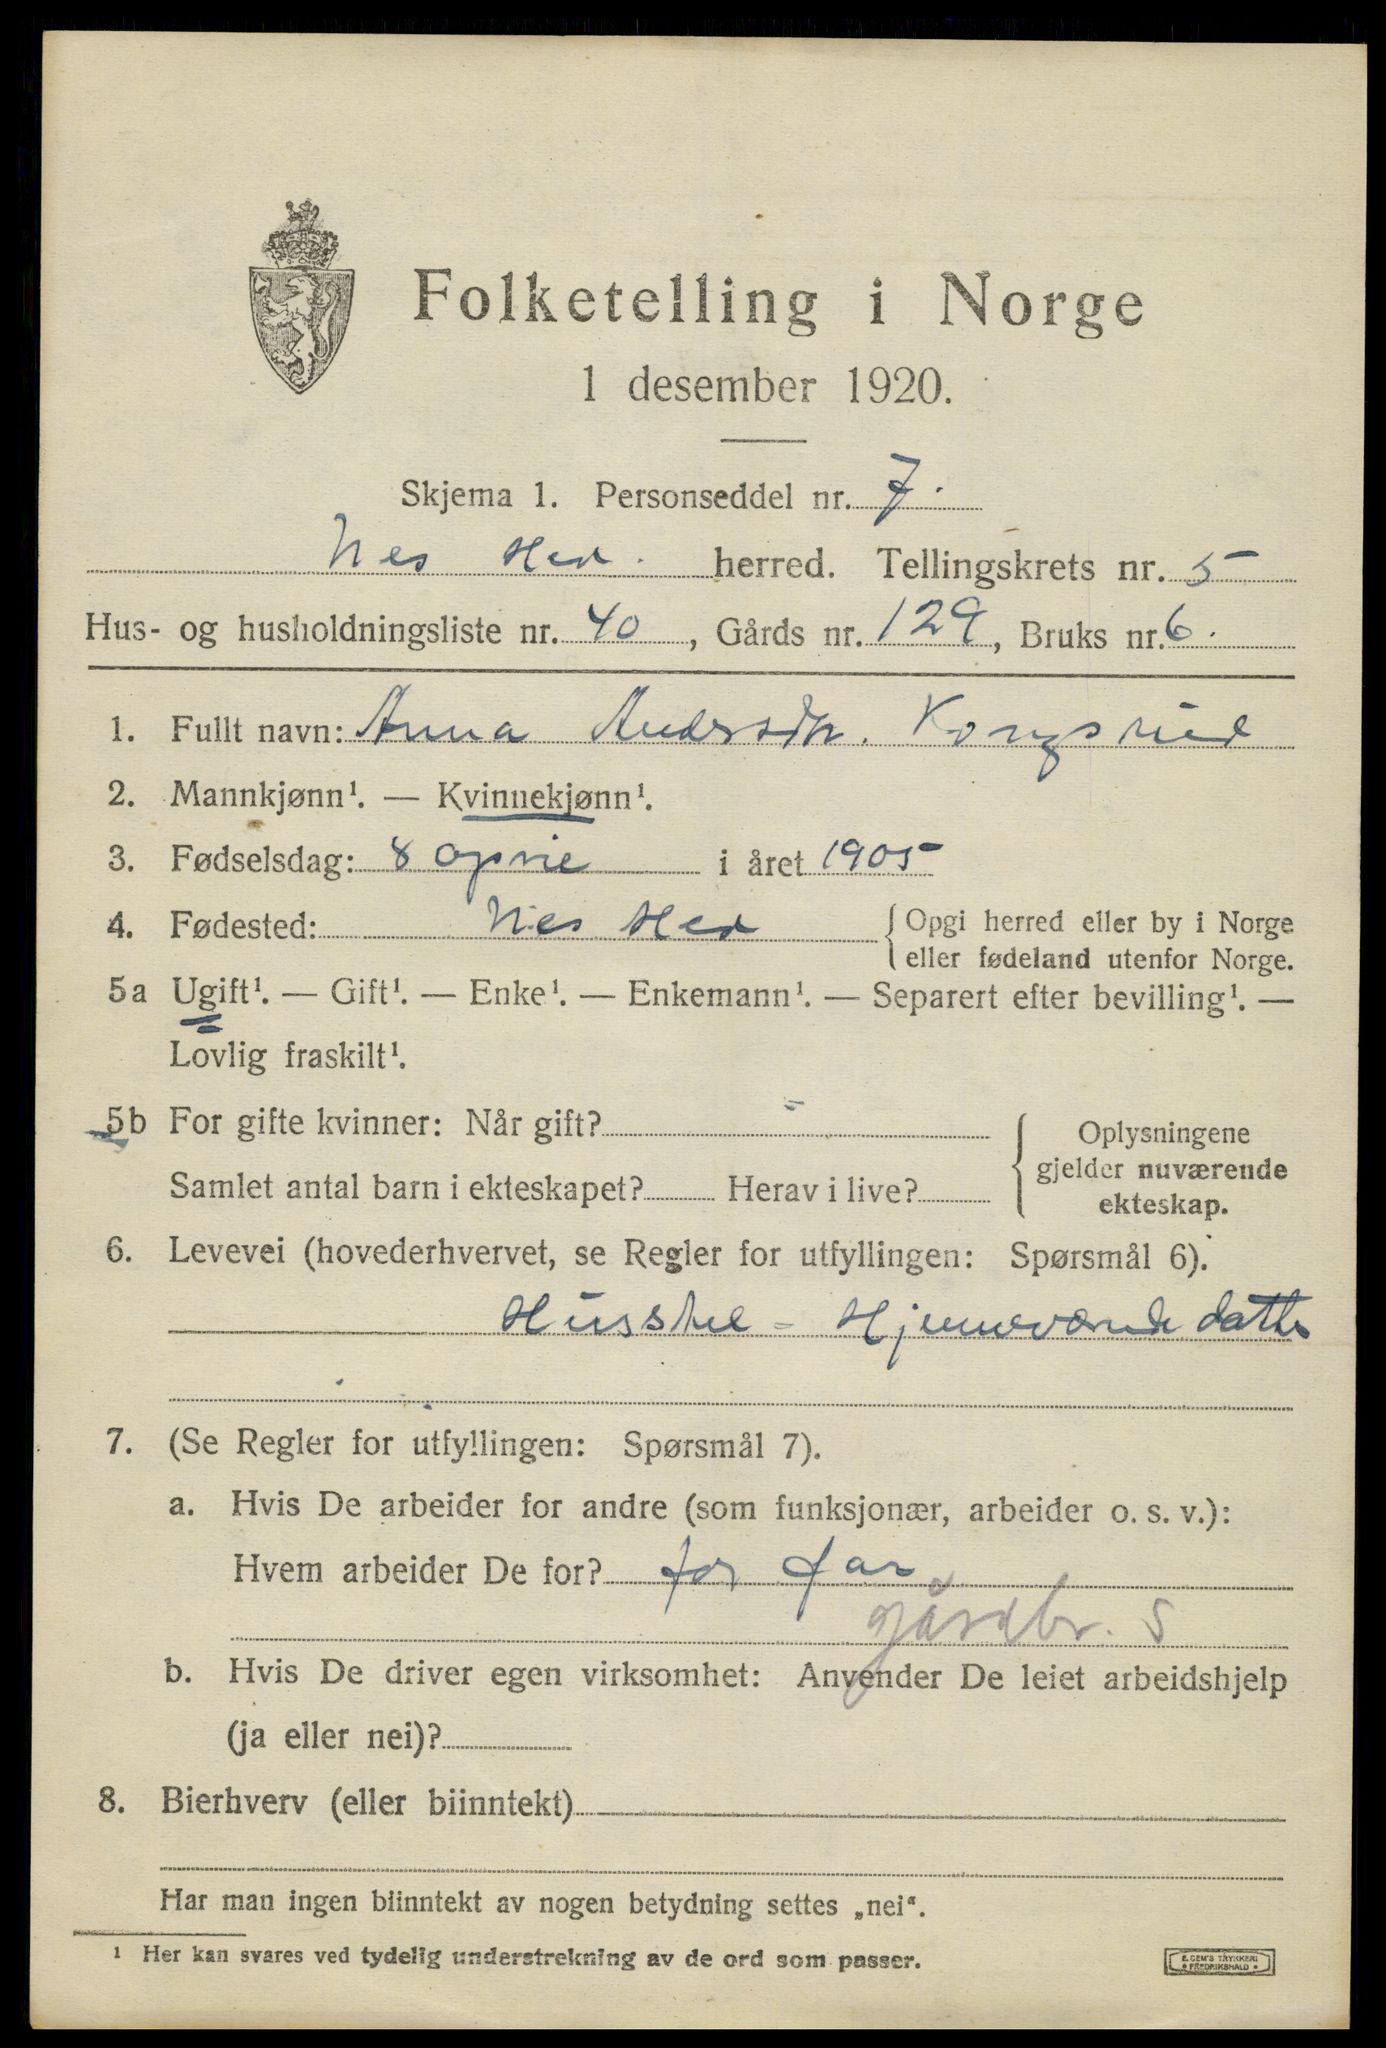 Folketelling i Norge
1 desember 1920.
Skjema 1. Personseddel nr. 7.
Nes Hed. herred. Tellingskrets nr. 5
Hus- og husholdningsliste nr. 40, Gårds nr. 129, Bruks nr. 6.
1. Fullt navn: Anna Andersdtr. Kongsrud
2. Mannkjønn¹. — Kvinnekjønn¹.
3. Fødselsdag: 8 april i året 1905
4. Fødested: Nes Hed { Opgi herred eller by i Norge
eller fødeland utenfor Norge.
5a Ugift¹. — Gift¹. — Enke¹. — Enkemann¹. — Separert efter bevilling¹. —
Lovlig fraskilt¹.
5b For gifte kvinner: Når gift? –
Samlet antal barn i ekteskapet? Herav i live?
{ Oplysningene
gjelder nuværende
ekteskap.
6. Levevei (hovederhvervet, se Regler for utfyllingen: Spørsmål 6).
Husstel - Hjemmeværende datter
7. (Se Regler for utfyllingen: Spørsmål 7).
a. Hvis De arbeider for andre (som funksjonær, arbeider o. s. v.):
Hvem arbeider De for? for far
gårdbr. S
b. Hvis De driver egen virksomhet: Anvender De leiet arbeidshjelp
(ja eller nei)?
8. Bierhverv (eller biinntekt)
Har man ingen biinntekt av nogen betydning settes „nei“.
¹ Her kan svares ved tydelig understrekning av de ord som passer.
E. GEM'S TRYKKERI
• FREDRIKSHALD •